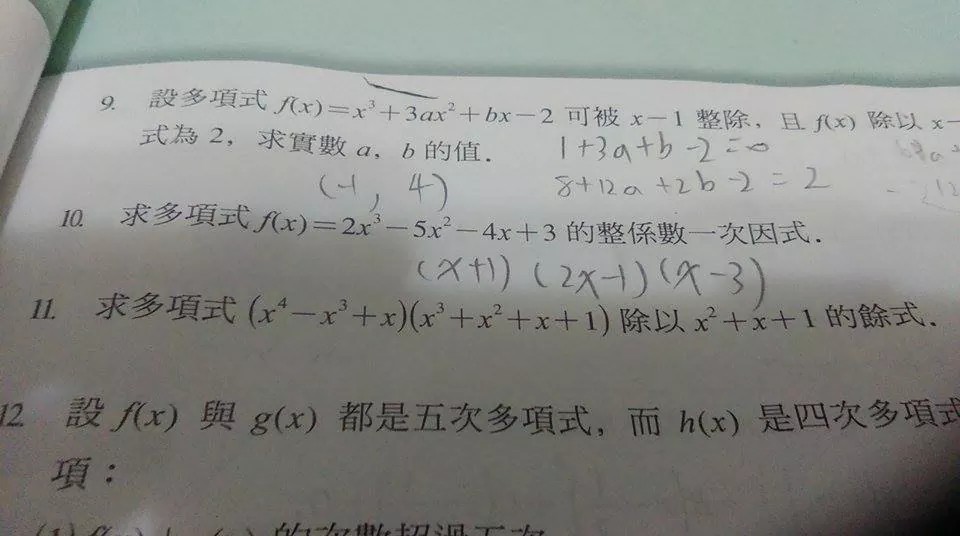 9. 設多項式 f(x)=x³+3ax²+bx−2 可被 x−1 整除，且 f(x) 除以 x−
式為 2，求實數 a，b 的值．
1+3a+b-2=0
(-1, 4)
8+12a+2b-2=2
10. 求多項式 f(x)=2x³−5x²−4x+3 的整係數一次因式．
(x+1)(2x-1)(x-3)
11. 求多項式 (x⁴−x³+x)(x³+x²+x+1) 除以 x²+x+1 的餘式．
12. 設 f(x) 與 g(x) 都是五次多項式，而 h(x) 是四次多項式
項：
的次數超過五次